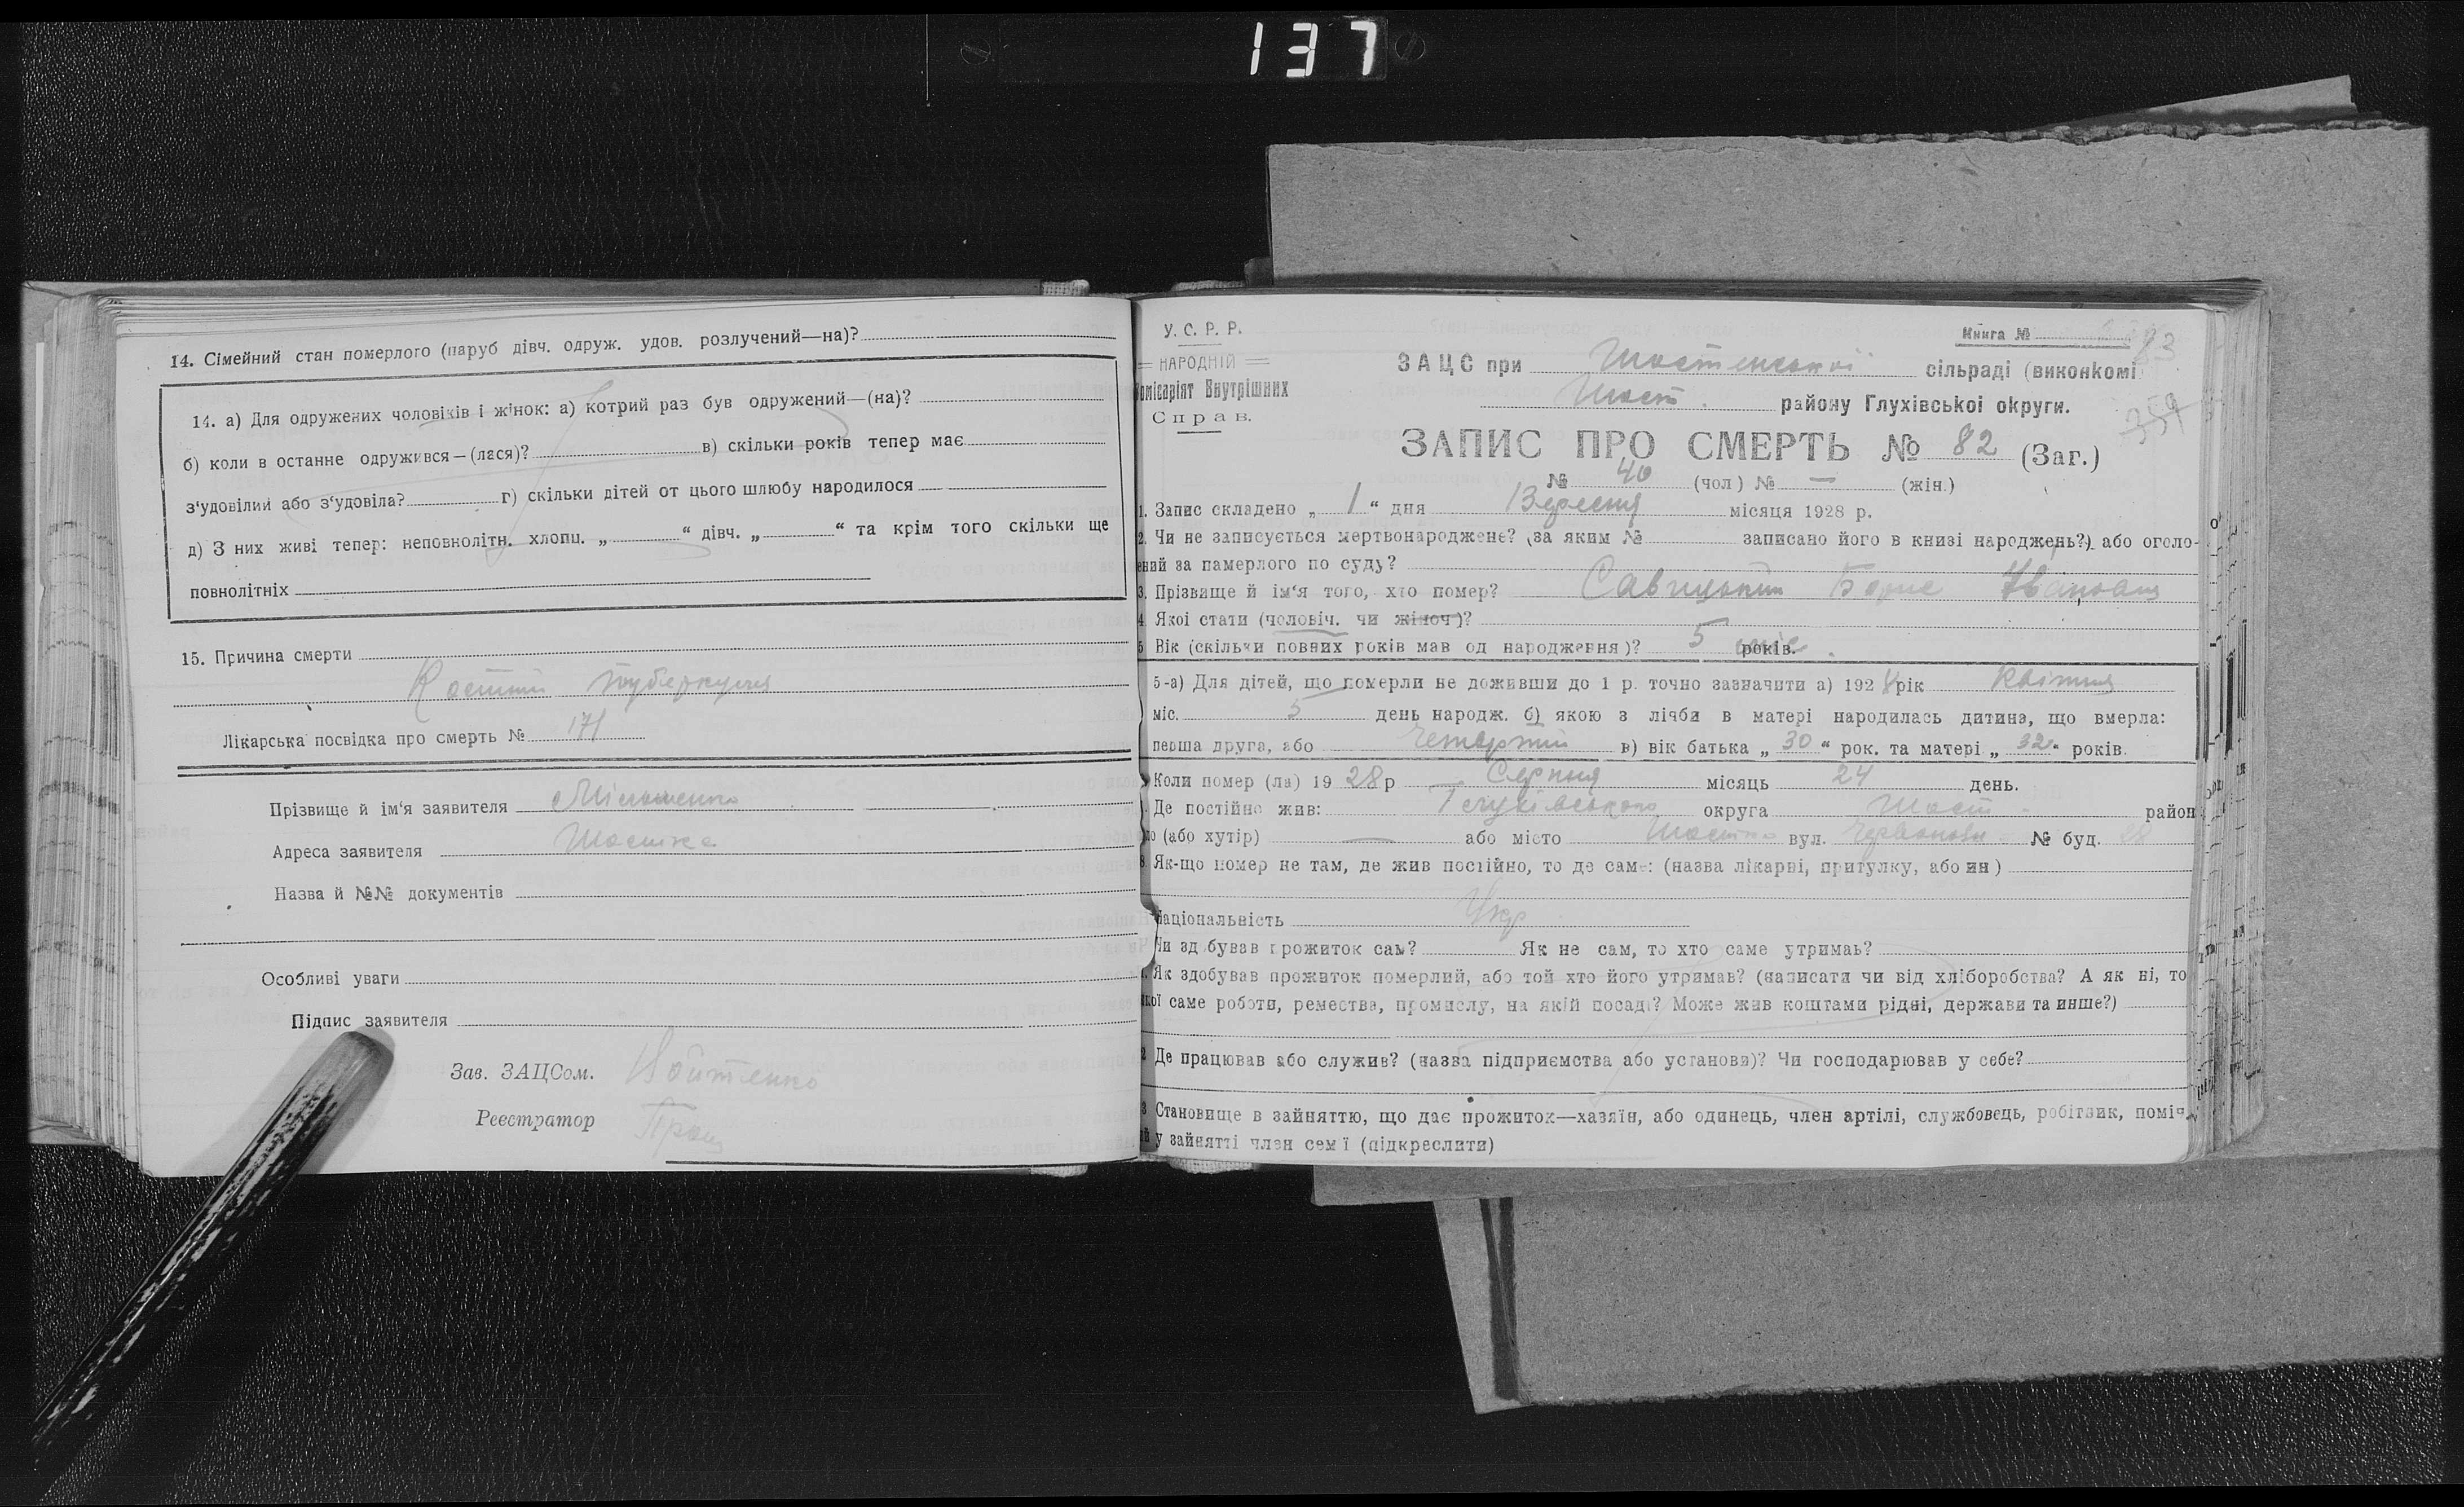 137
14. Сімейний стан померлого (паруб дівч. одруж. удов. розлучений—на)?
14. а) Для одружених чоловіків і жінок: а) котрий раз був одружений—(на)?
б) коли в останне одружився—(лася)? в) скільки років тепер має
з'удовілий або з'удовіла? г) скільки дітей от цього шлюбу народилося
д) З них живі тепер: неповнолітн. хлопц. „ “ дівч. „ “ та крім того скільки ще
повнолітніх
15. Причина смерти
туберкульоз
Лікарська посвідка про смерть № 171
Прізвище й ім'я заявителя
Адреса заявителя Шостка
Назва й №№ документів
Особливі уваги
Підпис заявителя
Зав. ЗАЦСом. Войтенко
Реєстратор
У. С. Р. Р.
НАРОДНІЙ
Комісаріят Внутрішних
Справ.
Книга №
83
ЗАЦС при Шостенської сільраді (виконкомі
Шост. району Глухівської округи.
359
ЗАПИС ПРО СМЕРТЬ № 82 (Заг.)
№ 40 (чол) № — (жін.)
1. Запис складено „ 1 “ дня Вересня місяця 1928 р.
2. Чи не записується мертвонароджене? (за яким № записано його в книзі народжень?) або оголо-
ений за памерлого по суду?
3. Прізвище й ім'я того, хто помер? Савицький Борис Іванович
4. Якої стати (чоловіч. чи жіноч)?
5 Вік (скільки повних років мав од народження)? 5 міс. років.
5-а) Для дітей, що померли не доживши до 1 р. точно зазначити а) 1928 рік Квітня
міс. 5 день народж. б) якою з лічби в матері народилась дитина, що вмерла:
перша друга, або четвертий в) вік батька „ 30 “ рок. та матері „ 32 “ років.
Коли помер (ла) 1928 р Серпня місяць 24 день.
Де постійно жив: Глухівського округа Шост. район
(або хутір) — або місто Шостка вул. № буд. 28
8. Як-що помер не там, де жив постійно, то де саме: (назва лікарні, притулку, або ин)
Національність Укр
Чи здобував прожиток сам? Як не сам, то хто саме утримав?
Як здобував прожиток померлий, або той хто його утримав? (написати чи від хліборобства? А як ні, то
якої саме роботи, ремества, промислу, на якій посаді? Може жив коштами рідні, держави та инше?)
2 Де працював або служив? (назва підприємства або установи)? Чи господарював у себе?
3 Становище в зайняттю, що дає прожиток—хазяїн, або одинець, член артілі, службовець, робітник, поміч-
ий у зайнятті член сем'ї (підкреслити)